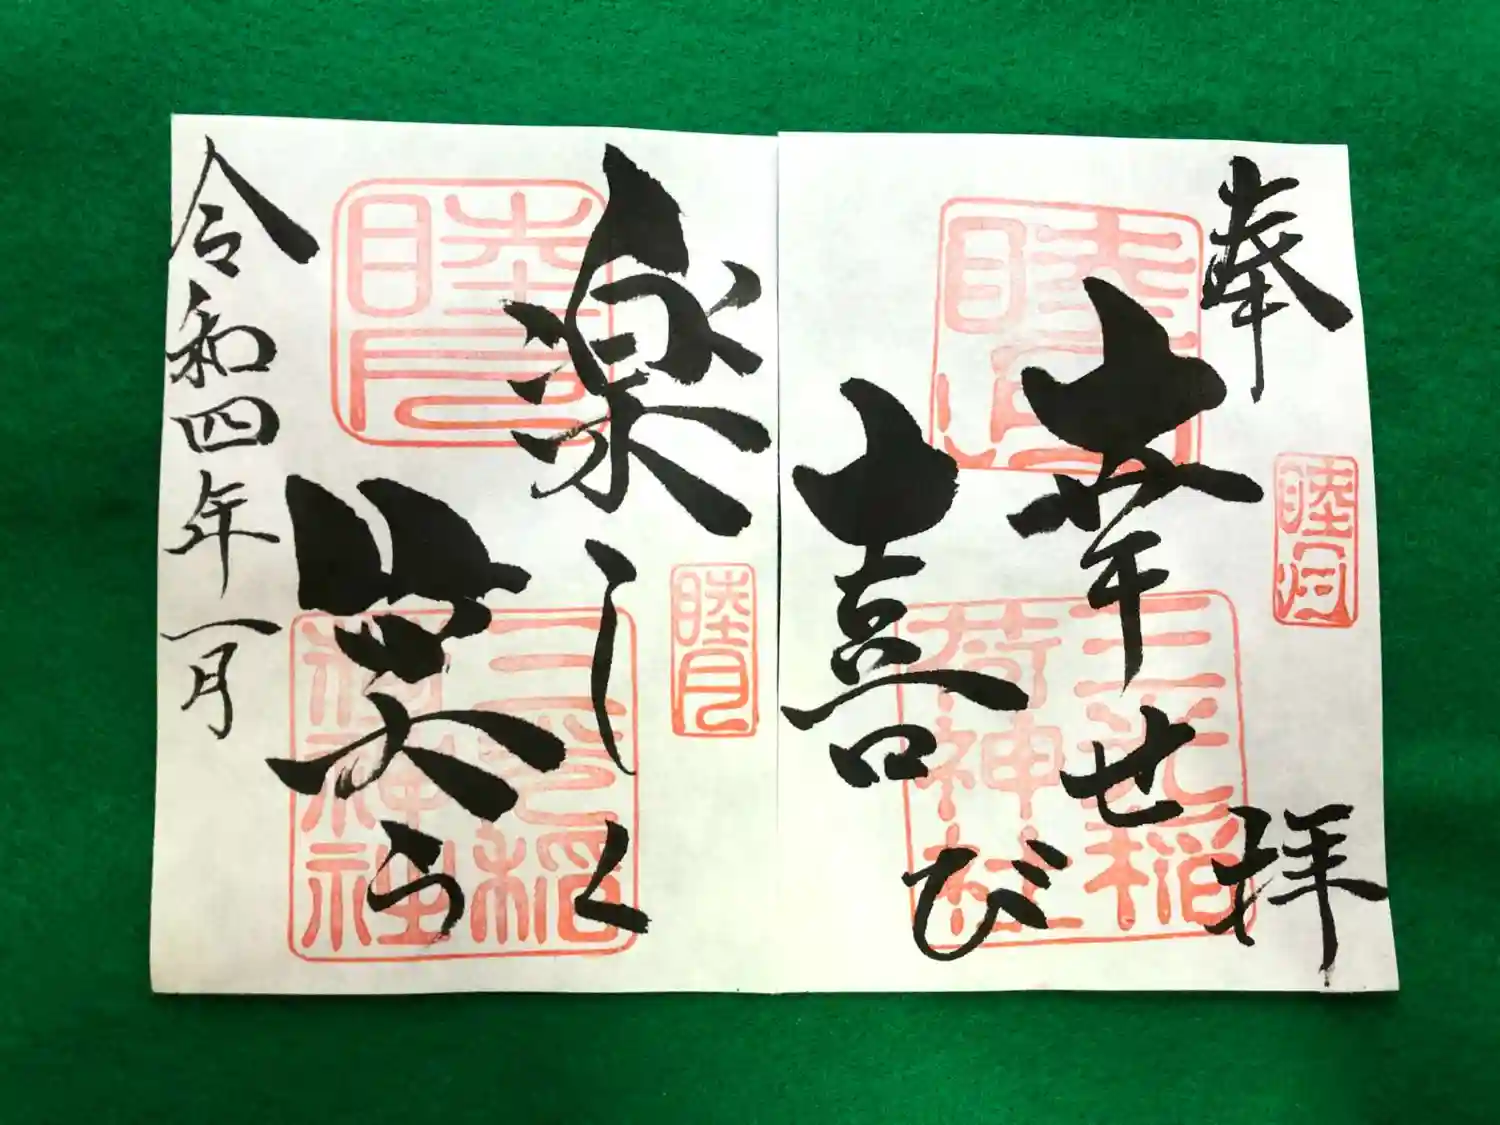 奉
拝
幸せ
喜び
楽しく
笑う
令和四年一月
睦月
睦月
三光稲荷神社
三光稲荷神社